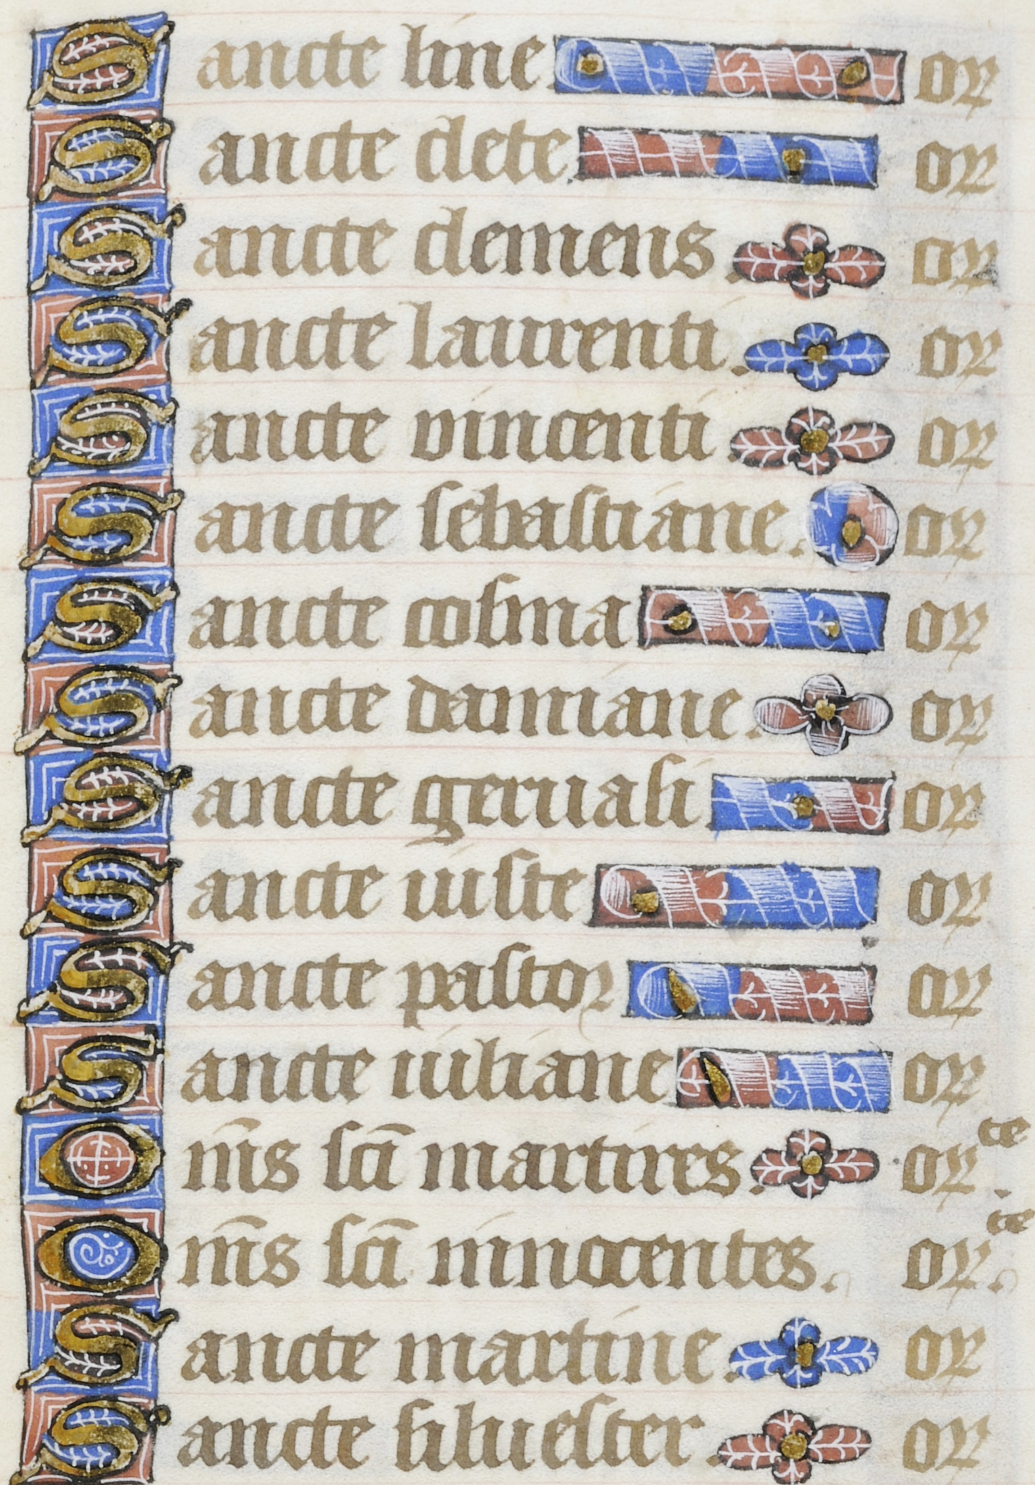 Sancte line or
Sancte clete or
Sancte clemens or
Sancte laurenti. or
Sancte vincenti or
Sancte sebastiane. or
Sancte cosma or
Sancte damiane. or
Sancte geruasi or
Sancte iuste or
Sancte pastor or
Sancte iuliane or
Om̅s sci̅ martires. or te.
Om̅s sci̅ innocentes. or te.
Sancte martine. or
Sancte siluester. or